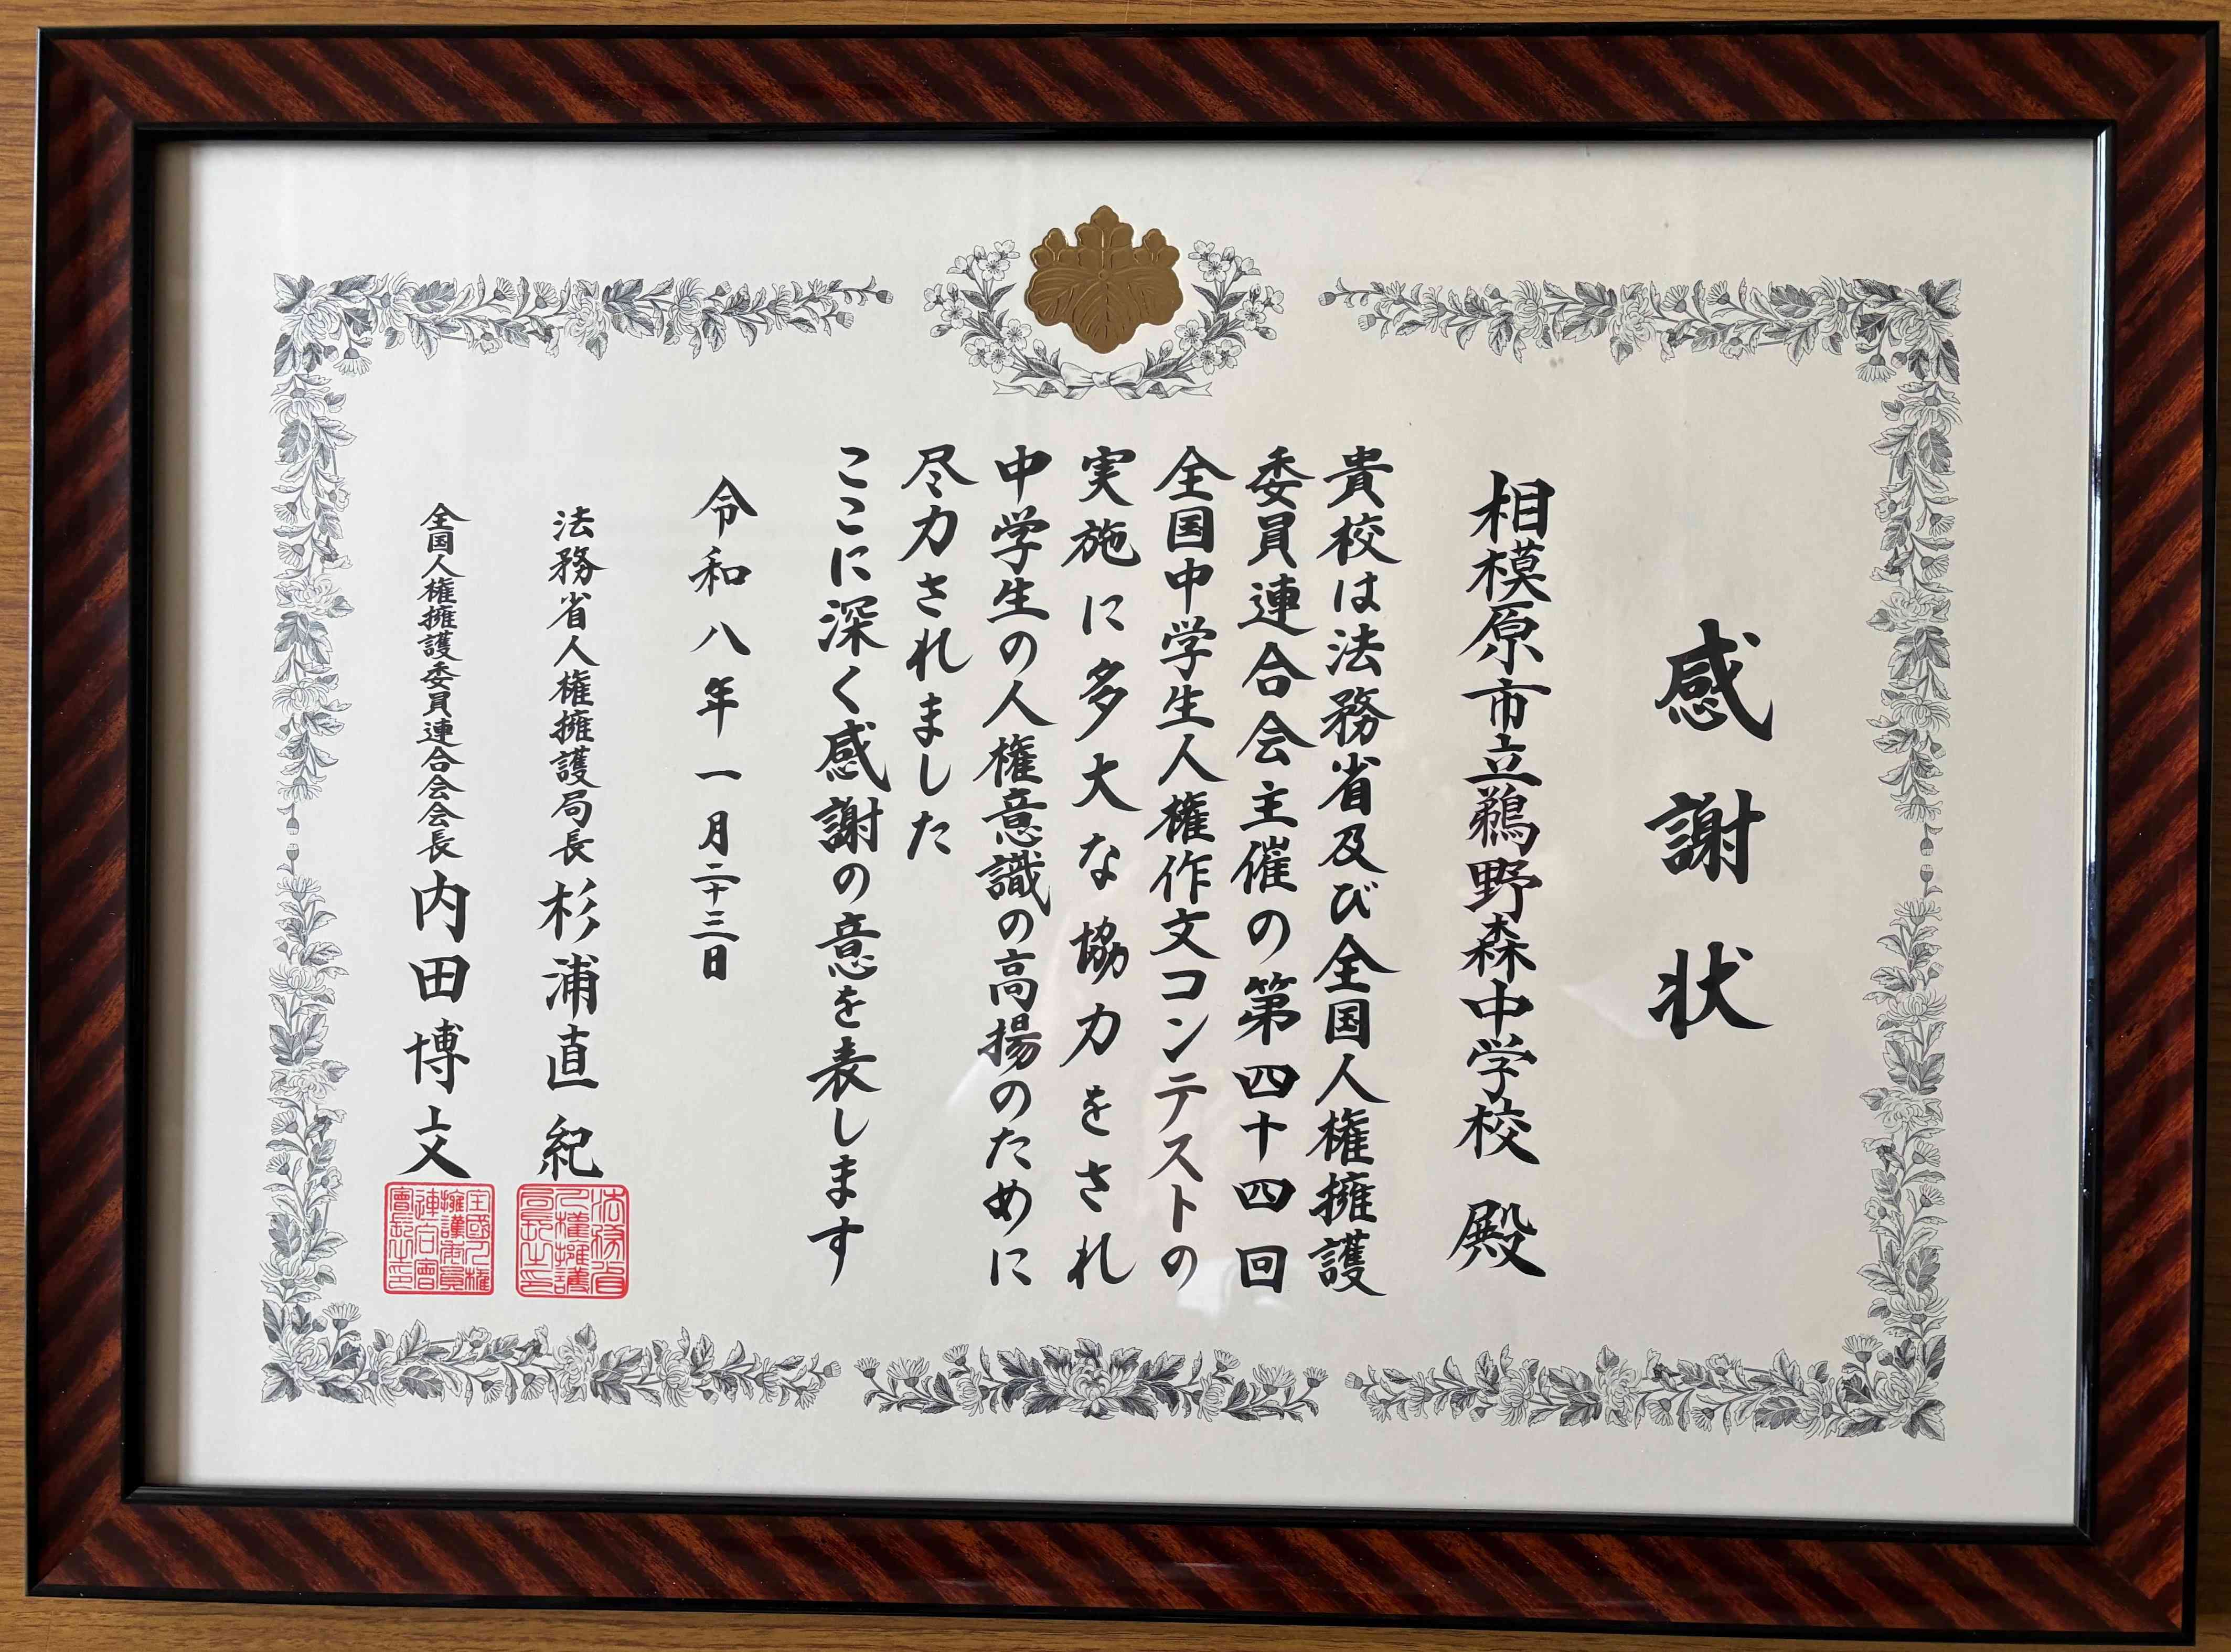 感謝状
相模原市立鵜野森中学校 殿
貴校は法務省及び全国人権擁護
委員連合会主催の第四十四回
全国中学生人権作文コンテストの
実施に多大な協力をされ
中学生の人権意識の高揚のために
尽力されました
ここに深く感謝の意を表します
令和八年一月二十三日
法務省人権擁護局長 杉浦直紀
法務省人権擁護局長之印
全国人権擁護委員連合会会長 内田博文
全國人権擁護委員連合會會長之印